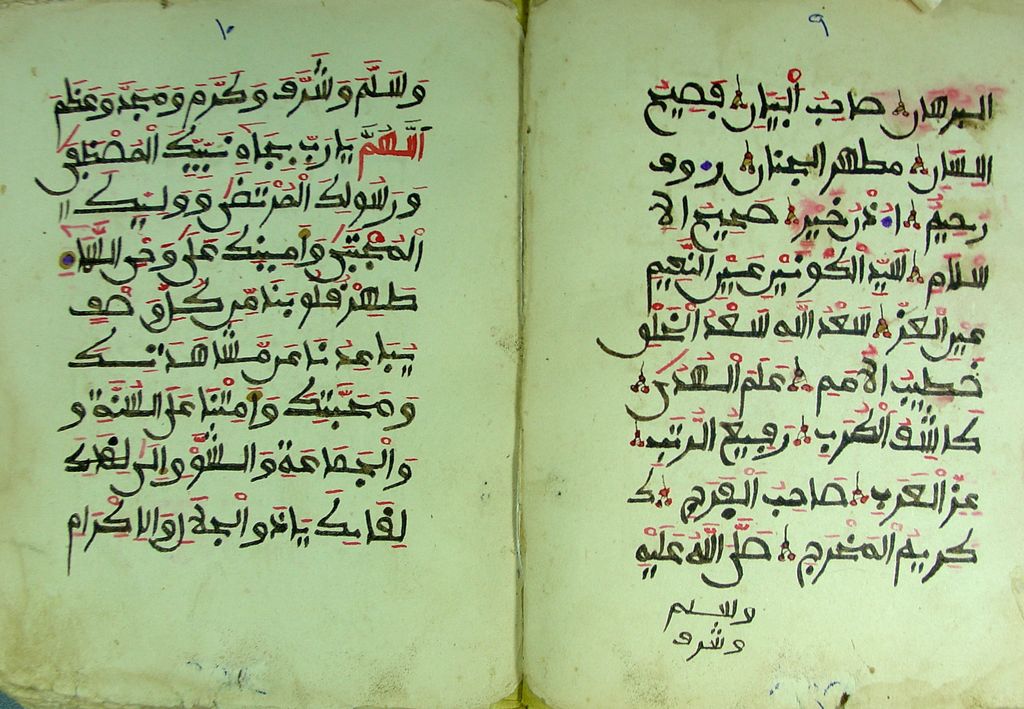 ٩
البرهان صاحب البيان فصيح
اللسان مطهر الجنان رءوف
رحيم اذن خير صحيح الا
سلام سيد الكونين عين النعيم
عين العز سعد الله سعد الخلق
خطيب الامم علم الهدى
كاشف الكرب رفيع الرتب
عز العرب صاحب الفرج ك
كريم المخرج صلى الله عليه
وسلم
وشرف
١٠
وسلم وشرف وكرم ومجد وعظم
اللهم يارب بجاه نبيك المصطفى
ورسولك المرتضى ووليك
المجتبى وامينك على وحي السماء
طهر قلوبنا من كل وصف
يباعدنا عن مشاهدتك
ومحبتك وامتنا على السنة و
والجماعة والشوق والى لقايك
لقايك ياذو الجلال والاكرام